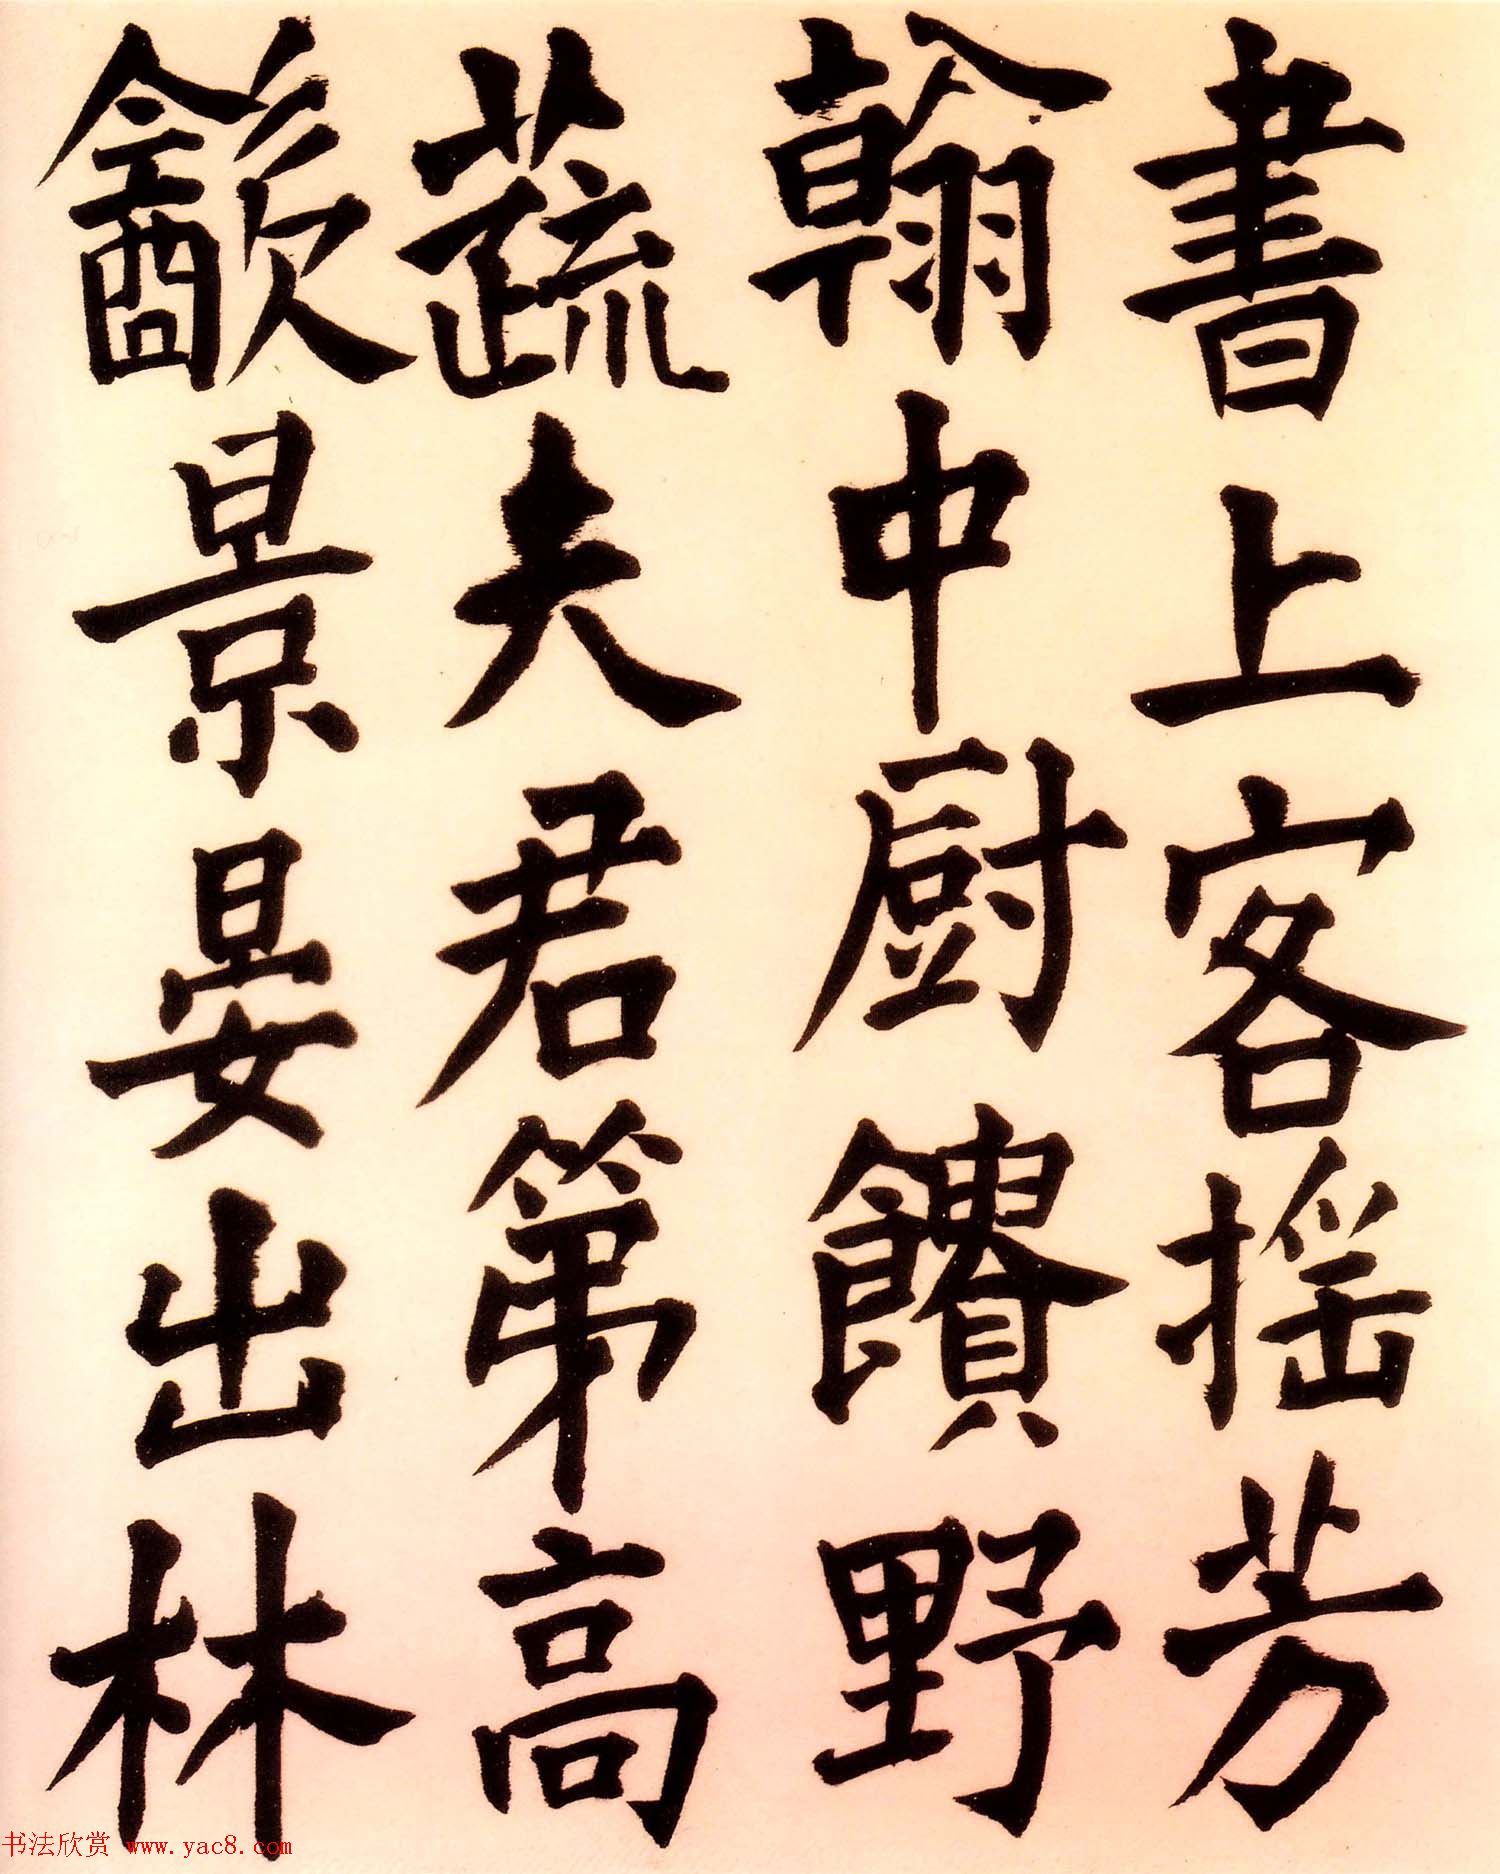 書上客揺芳
翰中厨饋野
蔬夫君第高
飲景晏出林
书法欣赏 www.yac8.com